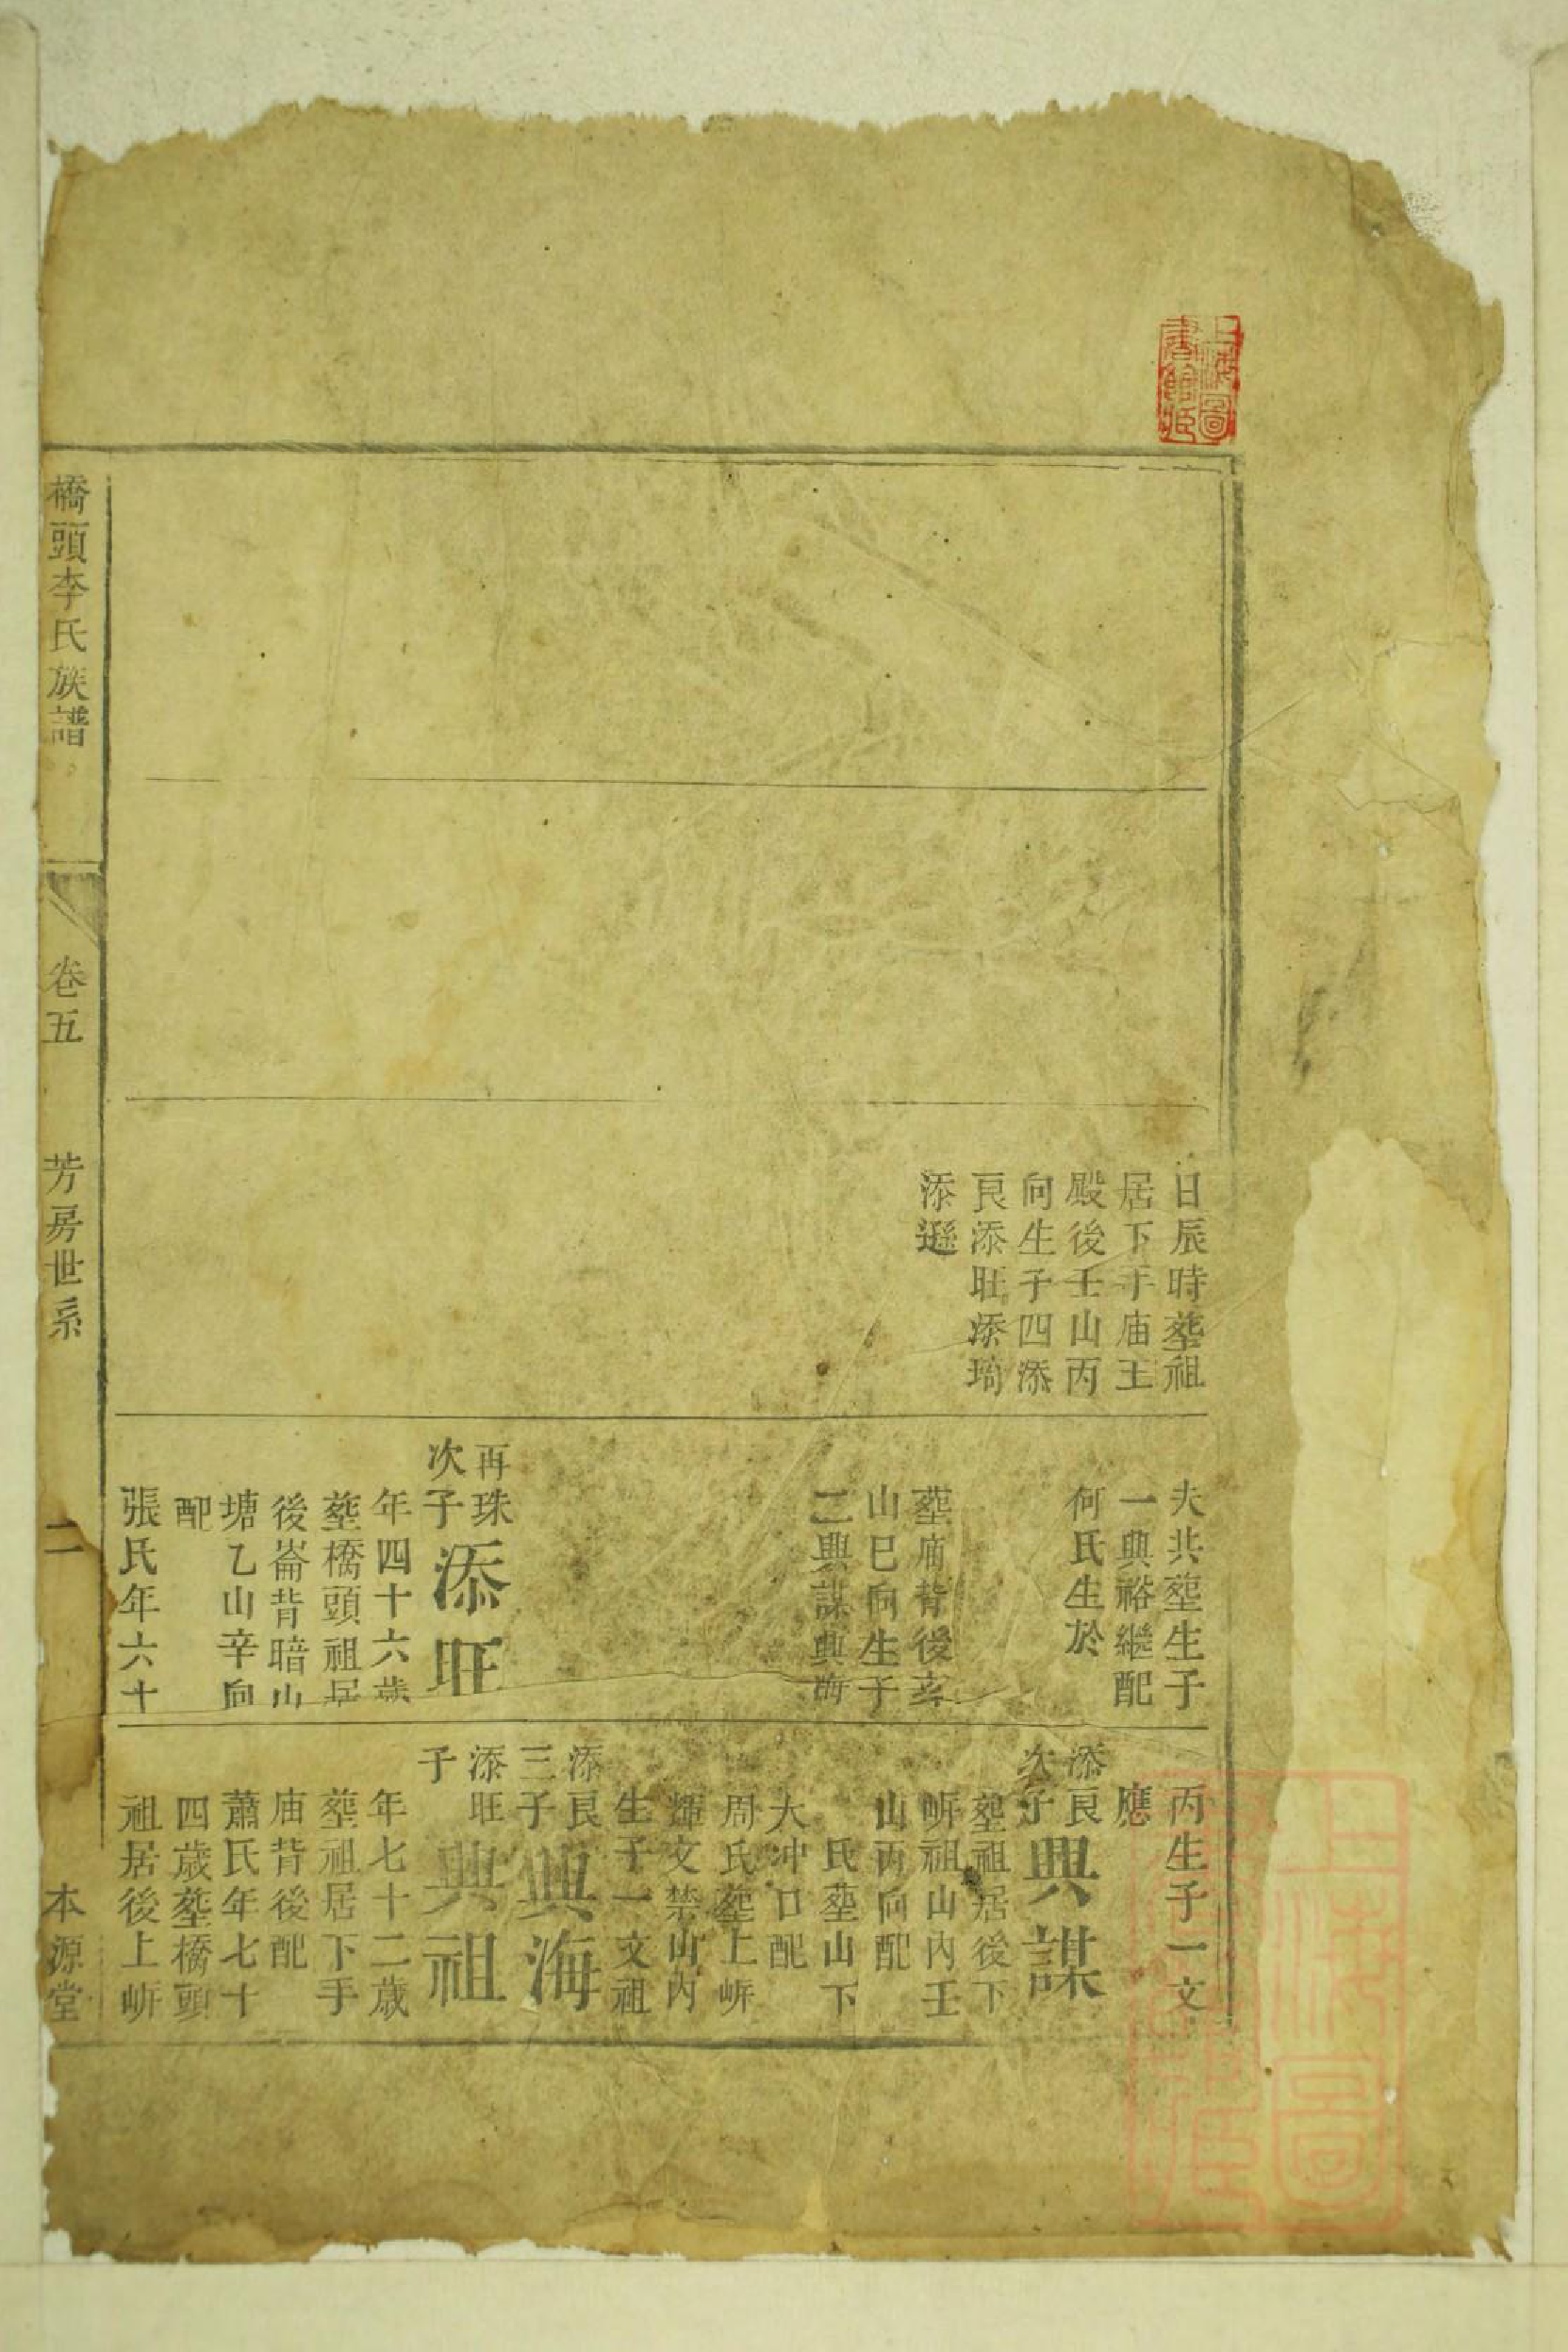 上海圖
書館藏
日辰時塟祖
居下手庙王
殿後壬山丙
向生子四添
良添旺添琦
添遜
夫共塟生子
一興裕繼配
何氏生於
塟庙背後亥
山巳向生子
二興謀興海
再珠
次子
添旺
年四十六歲
塟橋頭祖居
後崙背暗山
塘乙山辛向
配
張氏年六十
丙生子一文
應
添良
次子
興謀
塟祖居後下
㟁祖山內壬
山丙向配
氏塟山下
大冲口配
周氏塟上㟁
輝文禁山內
生子一文祖
添良
三子
興海
添旺
子
興祖
年七十二歲
塟祖居下手
庙背後配
蕭氏年七十
四歲塟橋頭
祖居後上㟁
橋頭李氏族譜
卷五
芳房世系
二
本源堂
上海圖